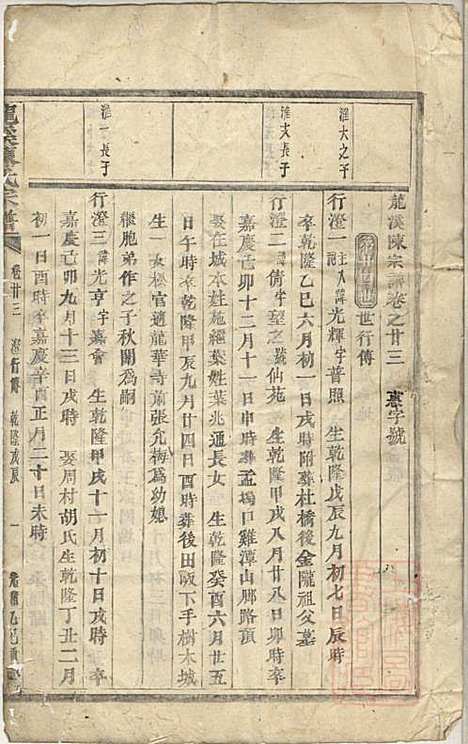 龍溪陳宗譜卷之廿三
世行傳
淮大之子
行澄一 主人 諱光輝字普照 生乾隆戊辰九月初七日辰時
卒乾隆乙巳六月初一日戌時附葬杜橋後金隴祖父墓
淮文長子
行澄二 諱倩字望之號仙苑 生乾隆甲戌八月廿八日卯時卒
嘉慶己卯十二月十一日申時葬孟塢口雞潭山腳路頭
娶在城本姓施繼葉姓葉兆通長女 生乾隆癸酉六月廿五
日午時卒乾隆甲辰九月廿四日酉時葬後田畈下手樹木城
生一女松官適龍華寺前張允梅爲幼媳
繼胞弟作之子秋關爲嗣
淮一長子
行澄三 諱光亨字嘉會 生乾隆甲戌十一月初十日戌時 卒
嘉慶己卯九月十三日戌時 娶周村胡氏生乾隆丁丑二月
初一日酉時卒嘉慶辛酉正月二十日未時
龍溪陳氏宗譜
卷廿三 澄行傳 乾隆戊辰 一